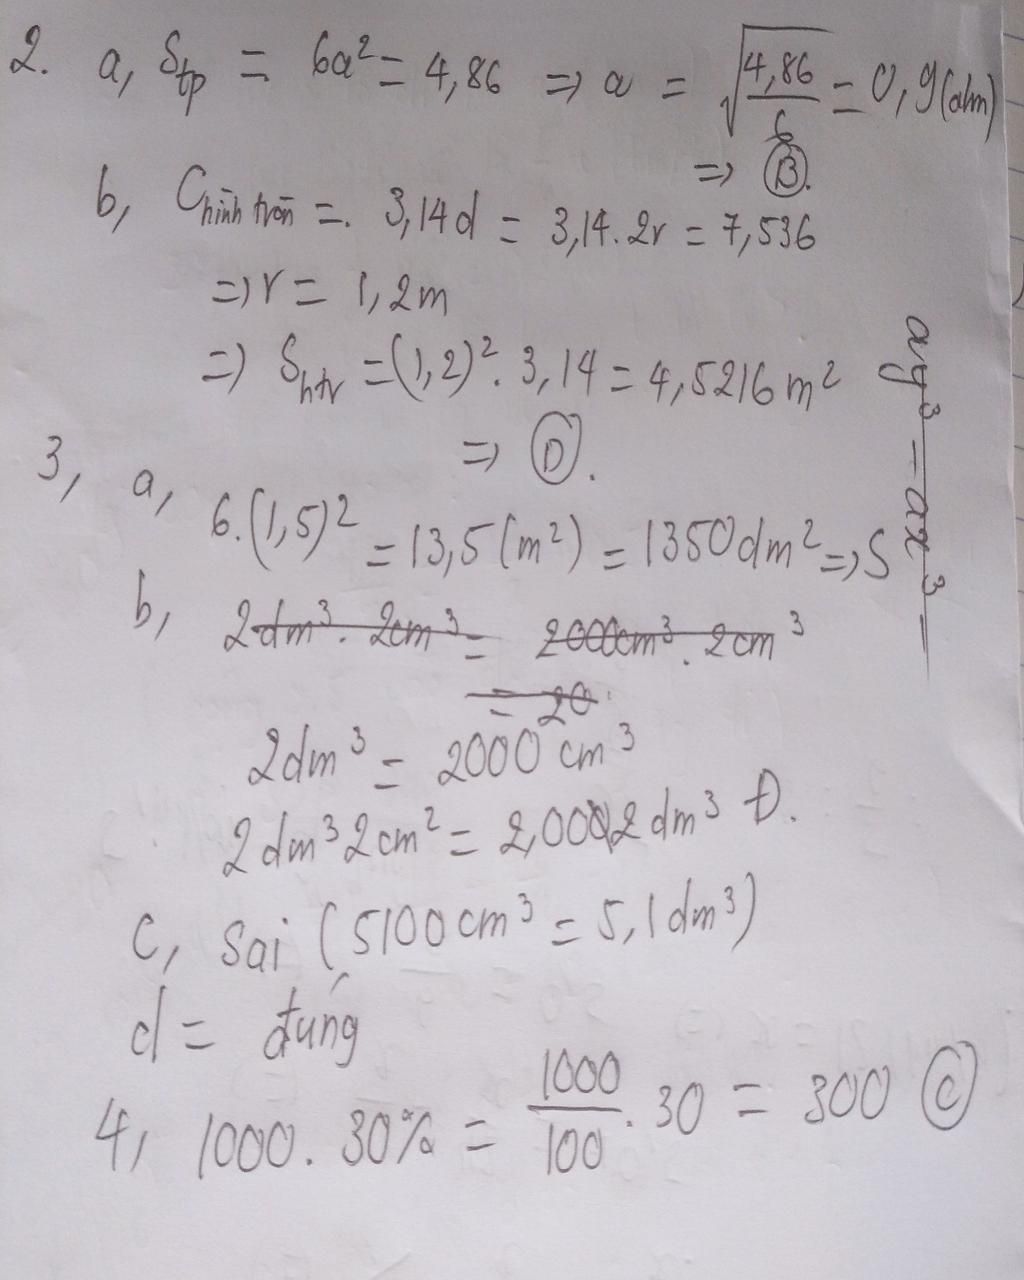 2. a, Stp = 6a² = 4,86 => a = √(4,86/6) = 0,9(dm)
=> B.
b, C hình tròn = 3,14d = 3,14.2r = 7,536
=> r = 1,2m
=> Shtr = (1,2)². 3,14 = 4,5216 m²
=> D.
3, a, 6.(1,5)² = 13,5(m²) = 1350dm² => S
b, 2dm³. 2cm³ = 2000cm³. 2cm³
= 20
2dm³ = 2000 cm³
2dm³2cm² = 2,0002dm³ Đ.
c, Sai (5100cm³ = 5,1dm³)
d = đúng
4, 1000. 30% = 1000/100 . 30 = 300 C
ay³ = ax³ =